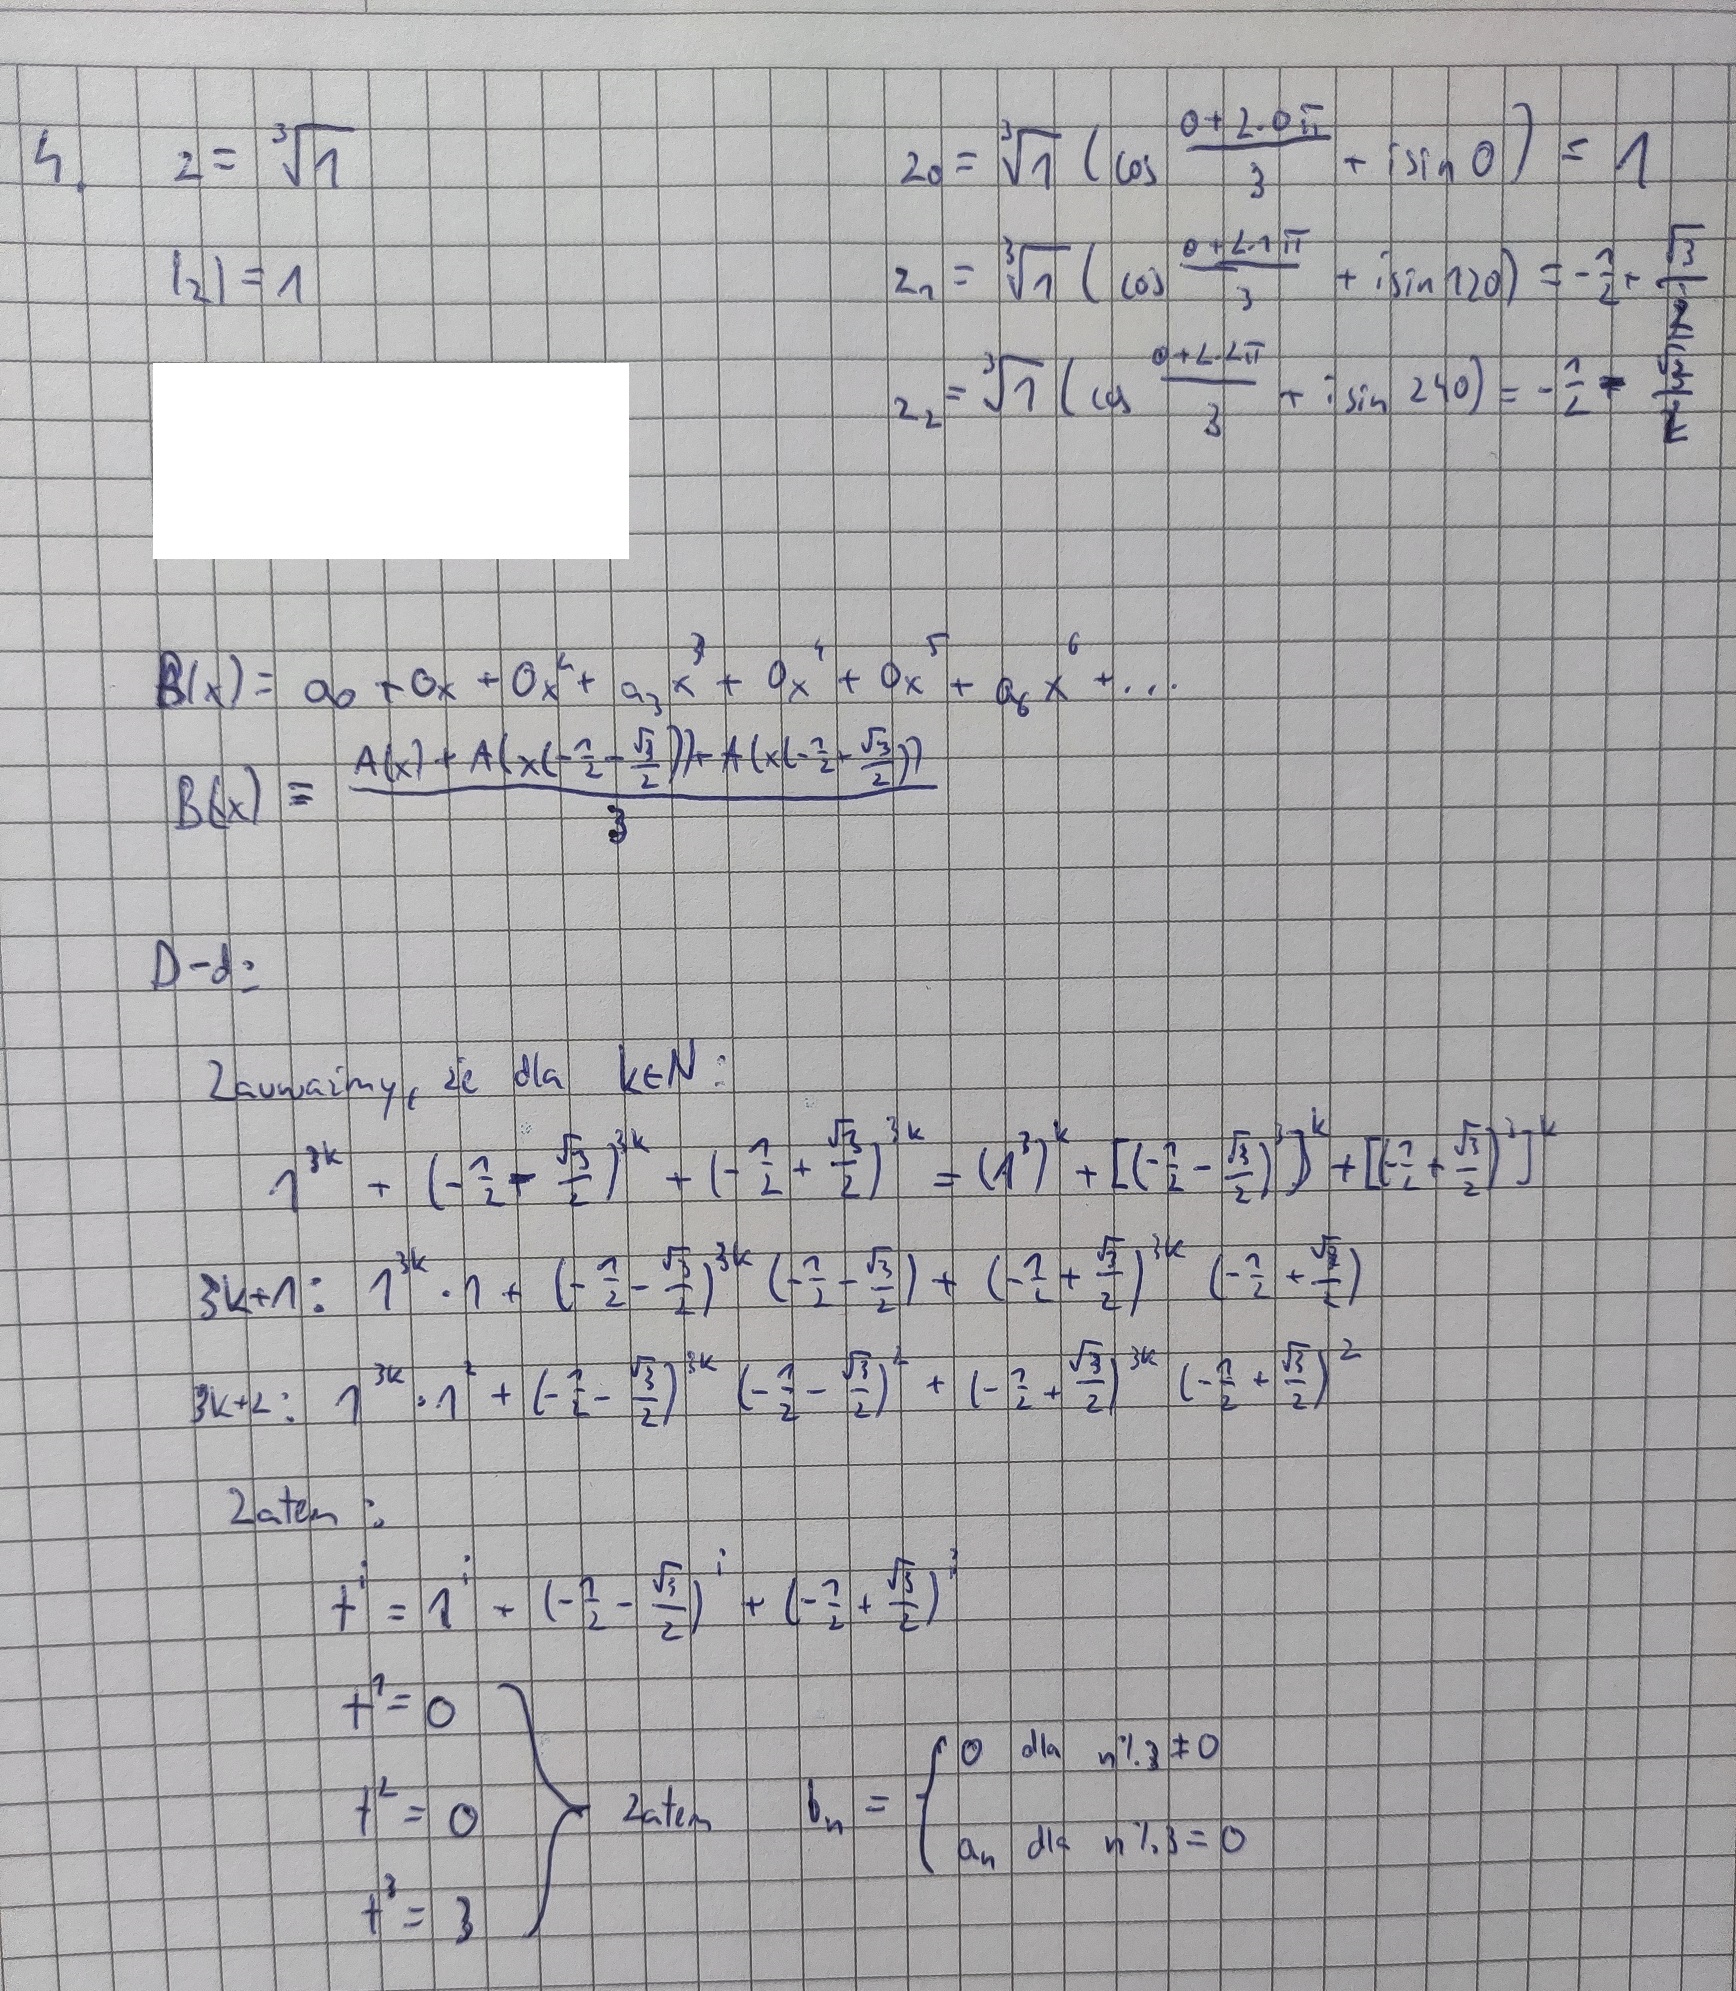 4. z = ∛1
|z| = 1
z₀ = ∛1 (cos (0+2·0π)/3 + i sin 0) = 1
z₁ = ∛1 (cos (0+2·1π)/3 + i sin 120) = -1/2 + √3/2
z₂ = ∛1 (cos (0+2·2π)/3 + i sin 240) = -1/2 - √3/2
B(x) = a₀ + 0x + 0x² + a₃x³ + 0x⁴ + 0x⁵ + a₆x⁶ + ...
B(x) = (A(x) + A(x(-1/2 - √3/2)) + A(x(-1/2 + √3/2)))/3
D-d:
Zauważmy, że dla k∈N:
1^3k + (-1/2 - √3/2)^3k + (-1/2 + √3/2)^3k = (1³)^k + [(-1/2 - √3/2)³]^k + [(-1/2 + √3/2)³]^k
3k+1: 1^3k · 1 + (-1/2 - √3/2)^3k (-1/2 - √3/2) + (-1/2 + √3/2)^3k (-1/2 + √3/2)
3k+2: 1^3k · 1² + (-1/2 - √3/2)^3k (-1/2 - √3/2)² + (-1/2 + √3/2)^3k (-1/2 + √3/2)²
Zatem:
t^i = 1^i + (-1/2 - √3/2)^i + (-1/2 + √3/2)^i
t¹ = 0
t² = 0
t³ = 3
Zatem bₙ = { 0 dla n%3 ≠ 0
aₙ dla n%3 = 0